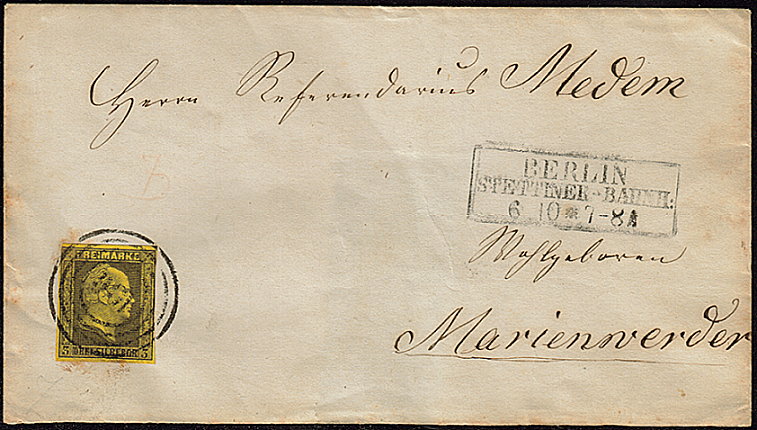 Herrn Referendarius Medem
BERLIN
STETTINER-BAHNH.
6 10 * 7-8 A
Wohlgeboren
Marienwerder
FREIMARKE
3 DREI SILBERGR. 3